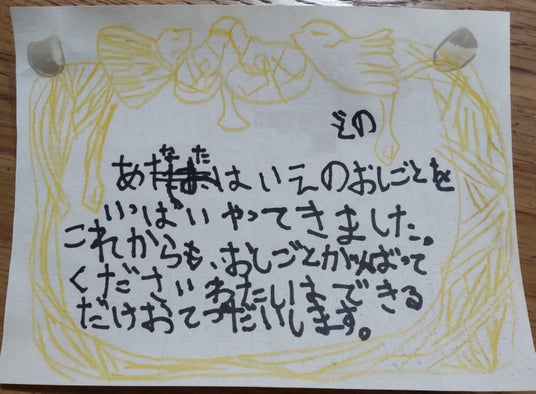 その
あなたはいえのおしごとを
いっぱいやってきました。
これからも、おしごとがんばって
くださいわたしはできる
だけおてつだいします。